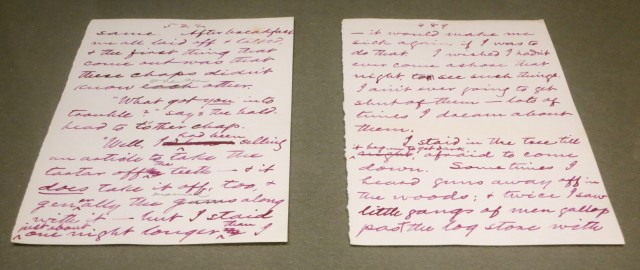 522
same. After breakfast
we all laid off & talked,
& the first thing that
come out was that
these chaps didn't
know each other.
"What got you into
trouble?" says the bald-
head to t'other chap.
"Well, I had been selling
an article to take the
tartar off the teeth — & it
does take it off, too, &
generly the gums along
with it — but I staid
just about
one night longer than I
489
— it would make me
sick again if I was to
do that. I wished I hadn't
ever come ashore that
night, to see such things.
I ain't ever going to get
shut of them — lots of
times I dream about
them.
I staid in the tree till
it begun to get dark,
afraid to come
down. Sometimes I
heard guns away off in
the woods; & twice I saw
little gangs of men gallop
past the log store with